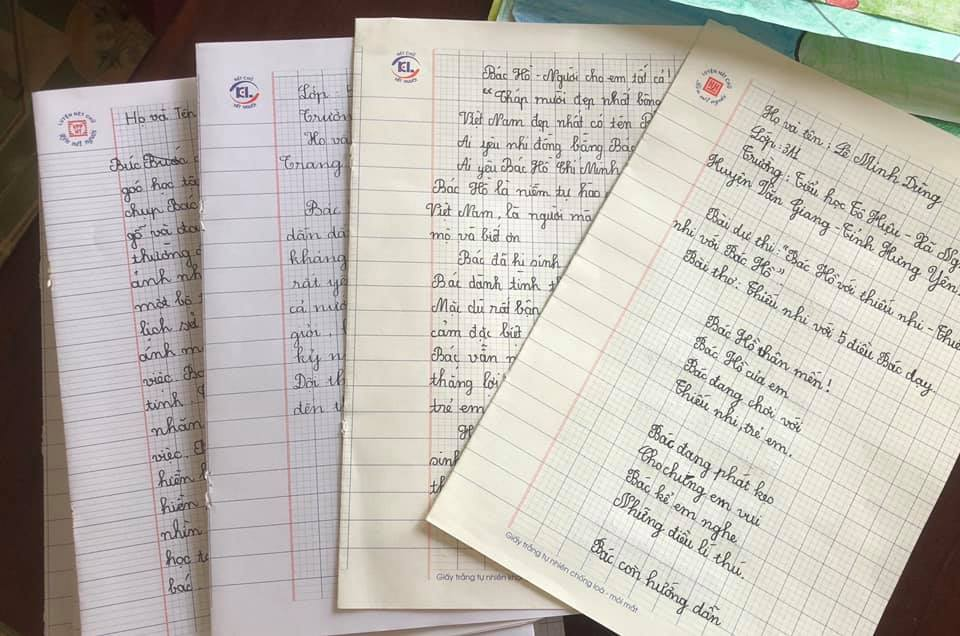 LUYỆN NÉT CHỮ
RÈN NẾT NGƯỜI
Họ và Tên
Bức
góc học tậ
chụp Bác
gỗ và
thường
ảnh
một bộ
lịch sử
ánh m
việc. B
tinh
nhân
việc.
hiền
hiền
nhìn
học t
bác
NÉT CHỮ
KẺL
NẾT NGƯỜI
Lớp
Trườn
Họ và
Trang
Bác
dân
kháng
rất yê
cả nướ
giới.
kỷ n
Dõi th
đến
NÉT CHỮ
NẾT NGƯỜI
Bác Hồ - Người cho em tất cả!
"Tháp mười đẹp nhất bông
Việt Nam đẹp nhất có tên B
Ai yêu nhi đồng bằng Bác
Ai yêu Bác Hồ Chí Minh
Bác Hồ là niềm tự hào
Việt Nam, là người mà
mộ và biết ơn
Bác đã hi sinh
Bác dành tình t
Mặc dù rất bận
cảm đặc biệt
Bác vẫn
thắng lợi
trẻ em
H
sinh
th
Giấy trắng tự nhiên
LUYỆN NÉT CHỮ
RÈN NẾT NGƯỜI
Họ và tên: Lê Minh Dũng
Lớp: 3A1
Trường: Tiểu học Tô Hiệu - Xã Ng
Huyện Văn Giang - Tỉnh Hưng Yên.
Bài dự thi: "Bác Hồ với thiếu nhi - Thiế
nhi với Bác Hồ"
Bài thơ: Thiếu nhi với 5 điều Bác dạy.
Bác Hồ thân mến!
Bác Hồ của em
Bác đang chơi với
Thiếu nhi, trẻ em.
Bác đang phát kẹo
Cho chúng em vui
Bác kể em nghe
Những điều lí thú.
Bác còn hướng dẫn
Giấy trắng tự nhiên chống loá - mỏi mắt